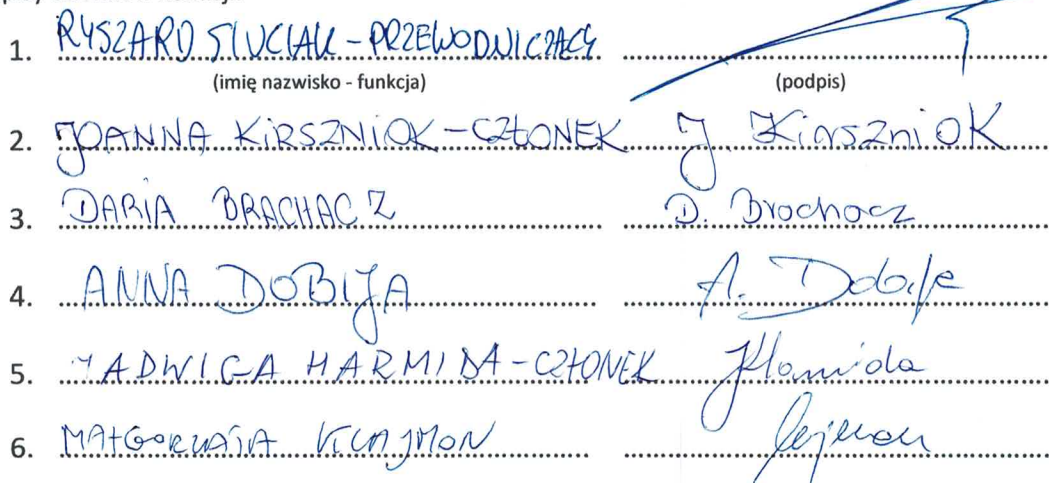 1. RYSZARD SIUCIAK - PRZEWODNICZĄCY
(imię nazwisko - funkcja) (podpis)
2. JOANNA KIRSZNIOK - CZŁONEK J. Kirszniok
3. DARIA BRACHACZ D. Brachacz
4. ANNA DOBIJA A. Dobija
5. JADWIGA HARMIDA - CZŁONEK
6. MAŁGORZATA KLAJMON